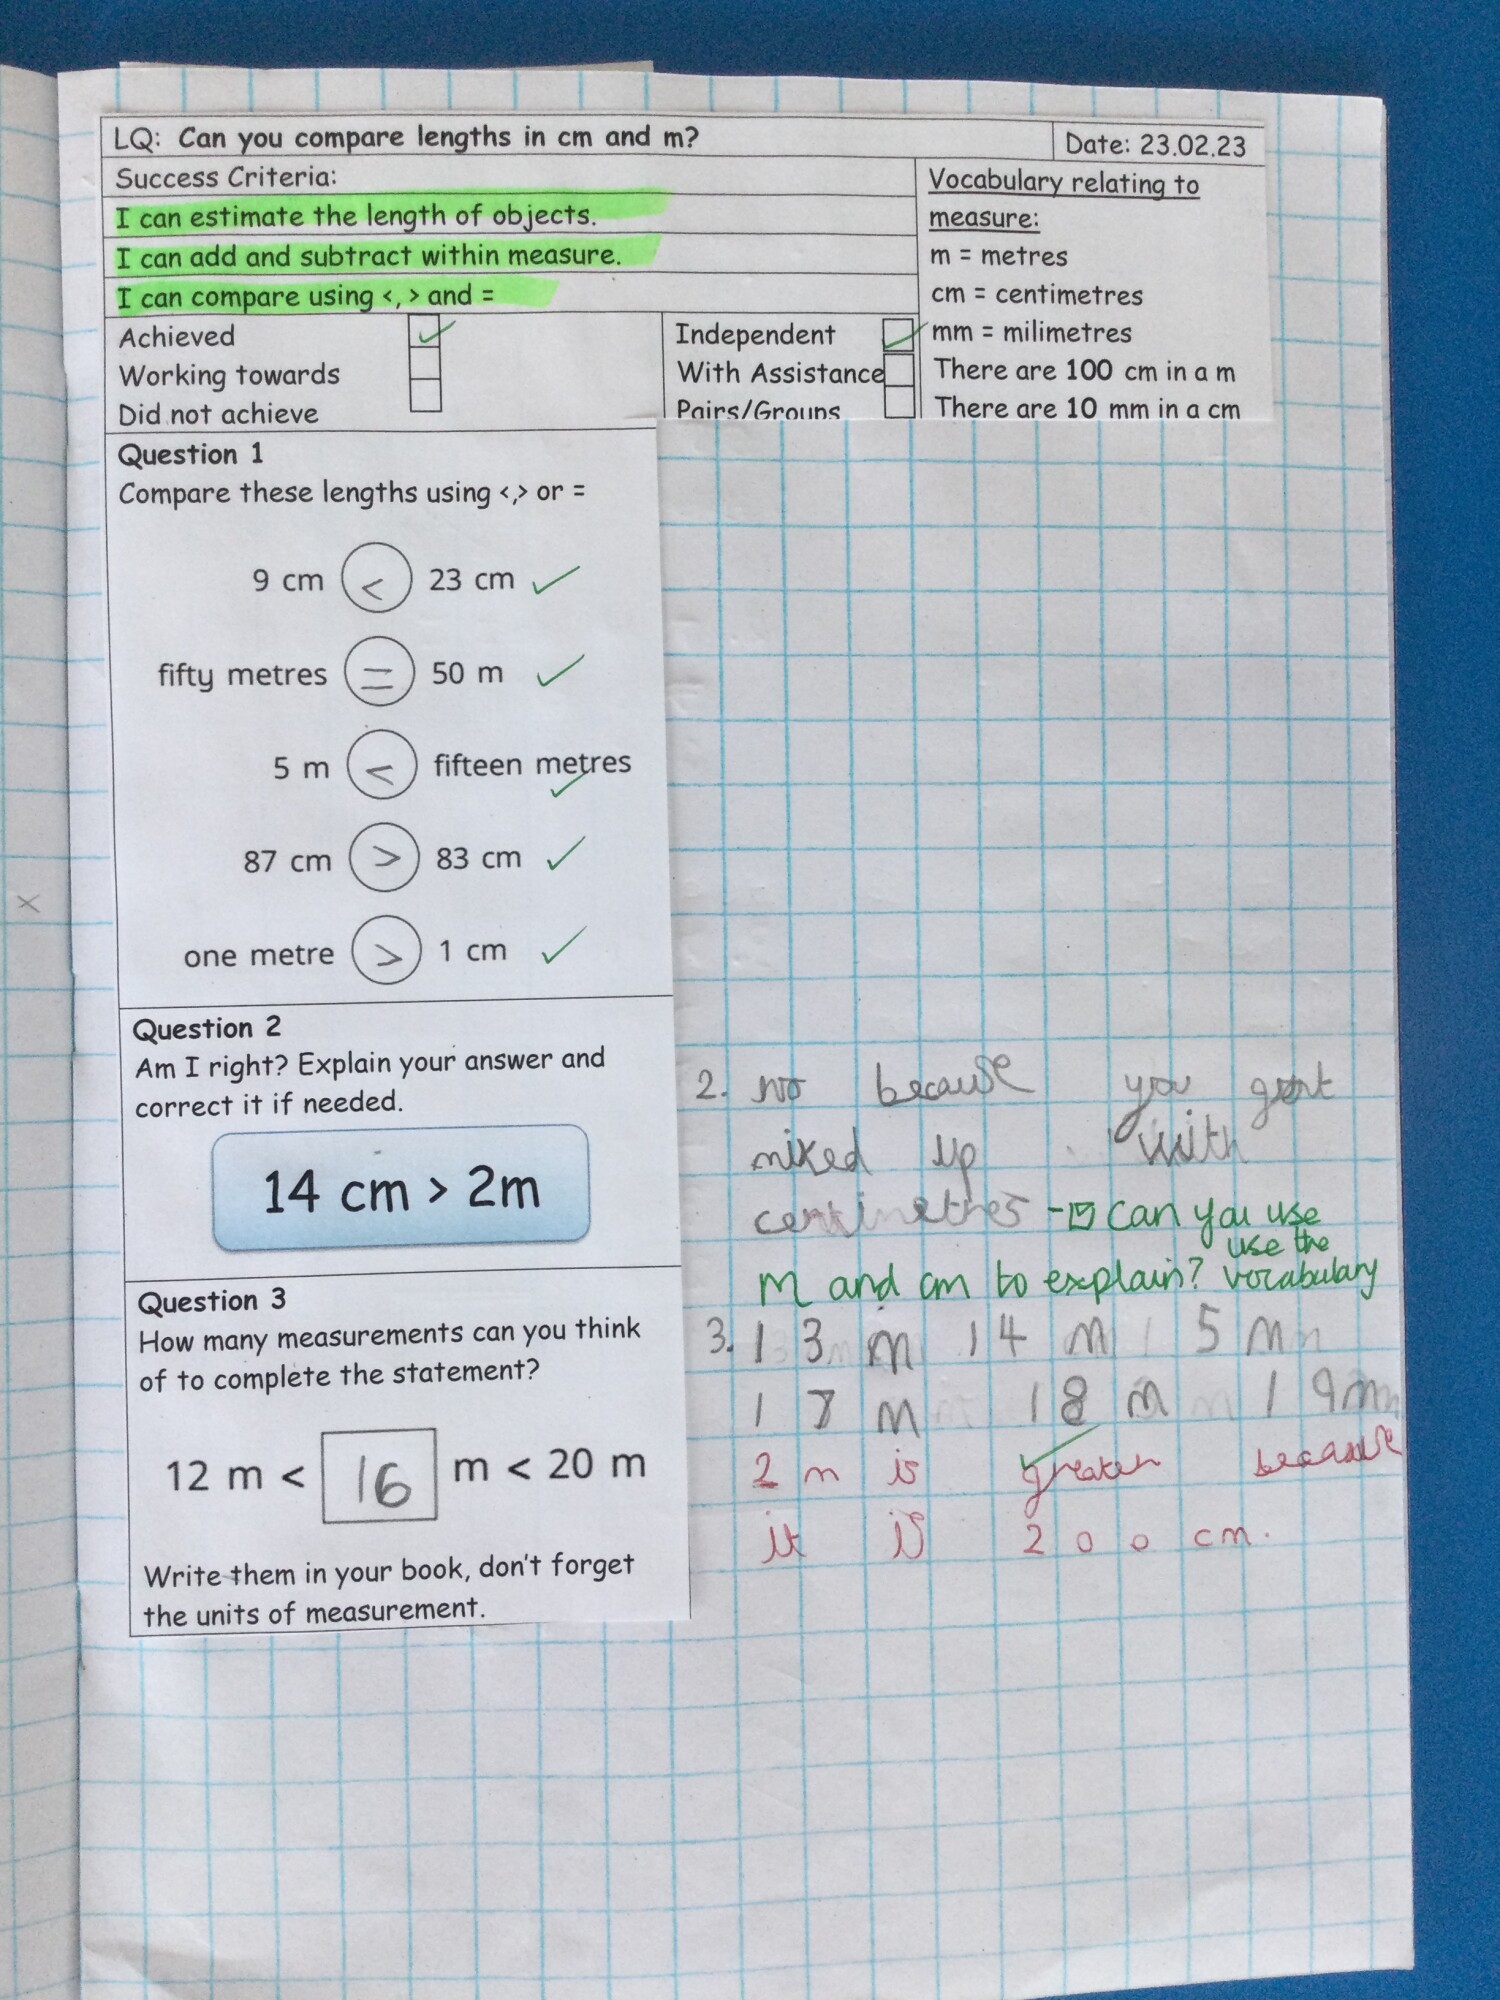 LQ: Can you compare lengths in cm and m?
Date: 23.02.23
Success Criteria:
I can estimate the length of objects.
I can add and subtract within measure.
I can compare using <, > and =
Vocabulary relating to
measure:
m = metres
cm = centimetres
mm = milimetres
There are 100 cm in a m
There are 10 mm in a cm
Achieved
Working towards
Did not achieve
Independent
With Assistance
Pairs/Groups
Question 1
Compare these lengths using <,> or =
9 cm < 23 cm
fifty metres = 50 m
5 m < fifteen metres
87 cm > 83 cm
one metre > 1 cm
Question 2
Am I right? Explain your answer and
correct it if needed.
14 cm > 2m
2. no because you got
mixed up with
centimetres
Can you use
m and cm to explain? use the
vocabulary
Question 3
How many measurements can you think
of to complete the statement?
12 m < 16 m < 20 m
Write them in your book, don't forget
the units of measurement.
3. 13 m 14 m 15 m
17 m 18 m 19m
2 m is greater because
it is 200 cm.